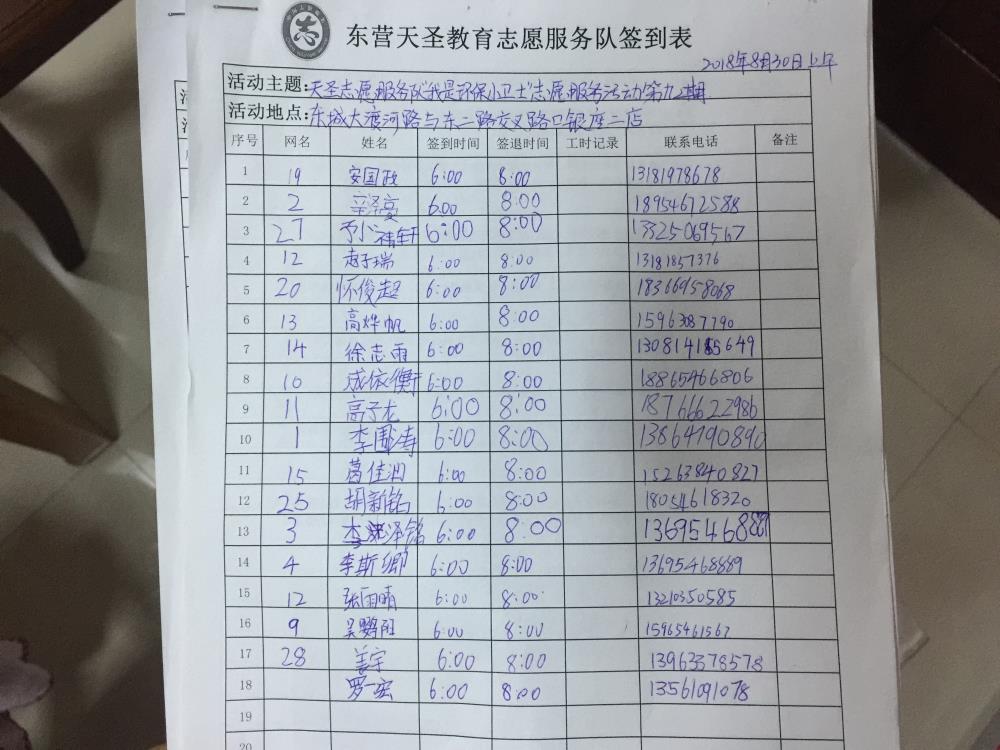 东营天圣教育志愿服务队签到表
2018年8月30日上午
活动主题:天圣志愿服务队"我是环保小卫士"志愿服务活动第九期
活动地点:东城大渡河路与东二路交叉路口银座二店
序号 网名 姓名 签到时间 签退时间 工时记录 联系电话 备注
1 19 安国政 6:00 8:00 13181978678
2 2 6:00 8:00 18954672588
3 27 6:00 8:00 13325069567
4 12 赵子瑞 6:00 8:00 13181857376
5 20 怀俊超 6:00 8:00 18366958068
6 13 高烨帆 6:00 8:00 15963087790
7 14 徐志雨 6:00 8:00
8 10 成依衡 6:00 8:00 18865466806
9 11 高子龙 6:00 8:00 18766622986
10 1 李图涛 6:00 8:00 13864190890
11 15 葛佳汩 6:00 8:00 15263840827
12 25 胡新铭 6:00 8:00 18054618320
13 3 6:00 8:00
14 4 李斯卿 6:00 8:00 13695468889
15 12 张雨晴 6:00 8:00 13210350585
16 9 吴鹦阳 6:00 8:00 15965461567
17 28 姜宇 6:00 8:00 13963378578
18 罗一宏 6:00 8:00 13561091078
19
20